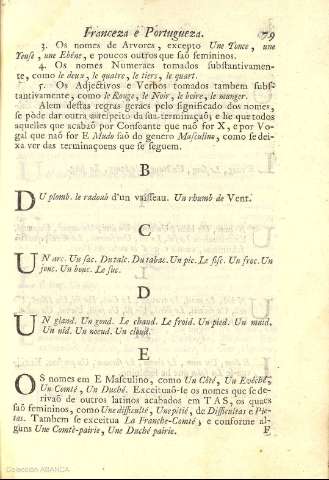 Franceza e Portugueza. 79
3. Os nomes de Arvores, excepto Une Ronce, une
Yeuse, une Ebéne, e poucos outros que saõ femininos.
4. Os nomes Numeraes tomados substantivamen-
te, como le deux, le quatre, le tiers, le quart.
5. Os Adjectivos e Verbos tomados tambem sub-
stantivamente, como le Rouge, le Noir, le boire, le manger.
Alem destas regras geraes pelo significado dos nomes,
se póde dar outra a respeito da sua terminaçaõ; e he que todos
aquelles que acabaõ por Consoante que naõ for X, e por Vo-
gal que naõ for E Mudo saõ do genero Masculino, como se dei-
xa ver das terminaçoens que se seguem.
B
DU plomb. le radoub d'un vaisseau. Un rhumb de Vent.
C
UN arc. Un sac. Du talc. Du tabac. Un pic. Le fisc. Un froc. Un
jonc. Un bouc. Le suc.
D
UN gland. Un gond. Le chaud. Le froid. Un pied. Un muid.
Un nid. Un noeud. Un cloud.
E
OS nomes em E Masculino, como Un Côté, Un Evêché,
Un Comté, Un Duché. Exceituaõ-se os nomes que se de-
rivaõ de outros latinos acabados em TAS, os quaes
saõ femininos, como Une difficulté, Une pitié, de Difficultas e Pie-
tas. Tambem se exceitua La Franche-Comté; e conforme al-
guns Une Comté-pairie, Une Duché pairie.
F
Colección ABANCA